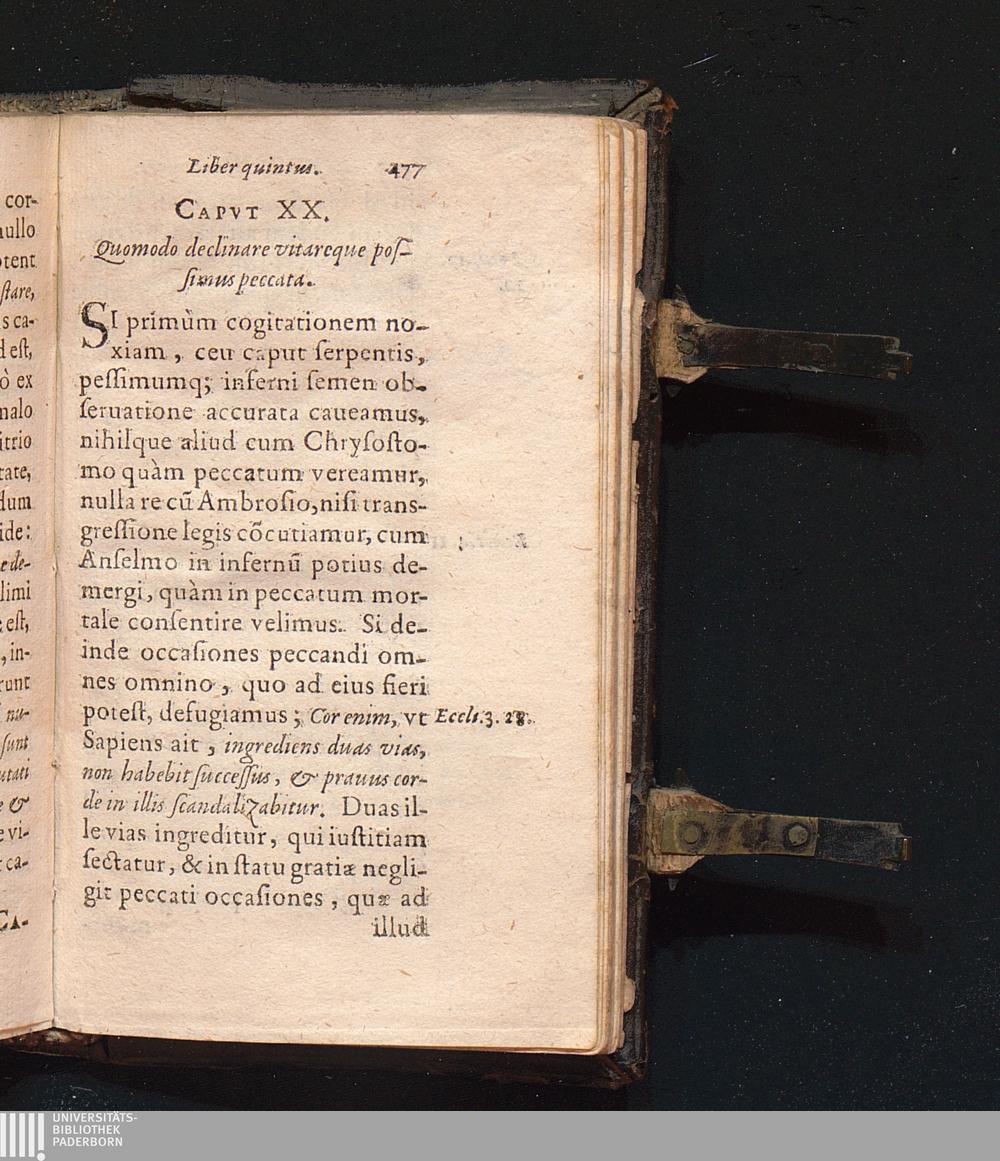 cor-
nullo
otent
stare,
s ca-
d est,
ò ex
malo
itrio
tate,
dum
ide:
e de-
limi
e est,
, in-
runt
nu-
sunt
utati
e &
e vi-
t ca-
CA-
Liber quintus. 477
CAPVT XX.
Quomodo declinare vitareque pos-
simus peccata.
SI primùm cogitationem no-
xiam, ceu caput serpentis,
pessimumq; inferni semen ob-
seruatione accurata caueamus,
nihilque aliud cum Chrysosto-
mo quàm peccatum vereamur,
nulla re cũ Ambrosio, nisi trans-
gressione legis cõcutiamur, cum
Anselmo in infernũ potius de-
mergi, quàm in peccatum mor-
tale consentire velimus. Si de-
inde occasiones peccandi om-
nes omnino, quo ad eius fieri
potest, defugiamus; Cor enim, vt
Eccls. 3. 28.
Sapiens ait, ingrediens duas vias,
non habebit successus, & prauus cor-
de in illis scandalizabitur. Duas il-
le vias ingreditur, qui iustitiam
sectatur, & in statu gratiæ negli-
git peccati occasiones, quæ ad
illud
UNIVERSITÄTS-
BIBLIOTHEK
PADERBORN